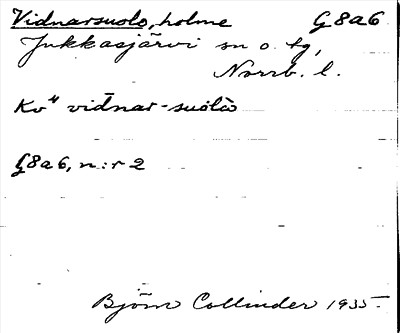 Vidnarsuolo, holme G8a6
Jukkasjärvi sn o. tg,
Norrb. l.
Kv4 vīdnar-suolo
G8a6, n:r 2
Björn Collinder 1935